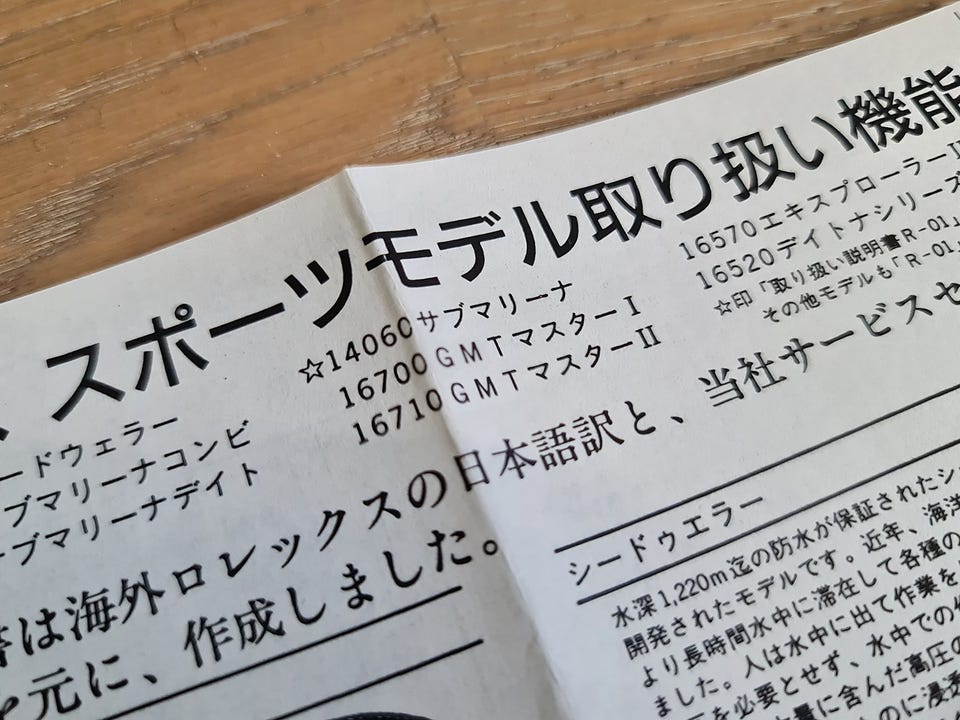 スポーツモデル取り扱い機能
ードウェラー
ブマリーナコンビ
ブマリーナデイト
☆14060サブマリーナ
16700GMTマスターI
16710GMTマスターII
16570エキスプローラーI
16520デイトナシリーズ
☆印「取り扱い説明書R-01」
その他モデルも「R-01」
は海外ロレックスの日本語訳と、当社サービスセ
元に、作成しました。
シードゥエラー
水深1,220m迄の防水が保証されたシ
開発されたモデルです。近年、海洋
より長時間水中に滞在して各種の
ました。人は水中に出て作業を
を必要とせず、水中での作
量に含んだ高圧の
のに浸透